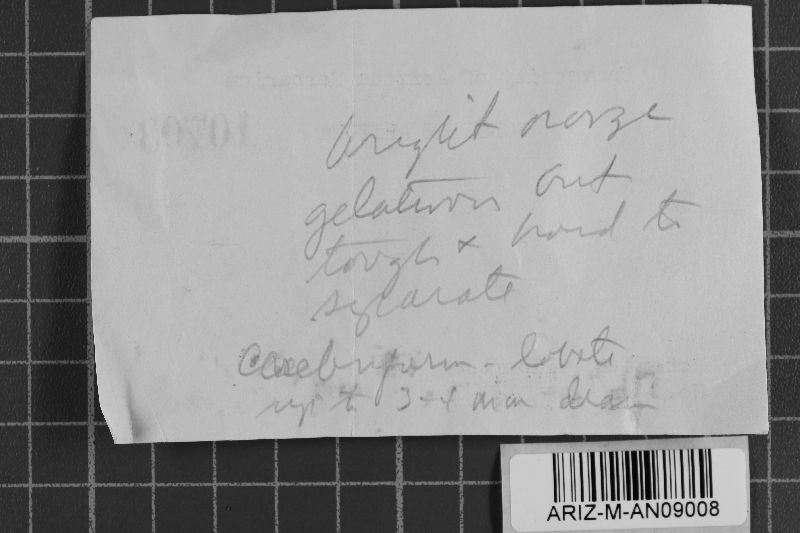 bright orange
gelatinous but
tough & hard to
separate
Cerebriform - lobate
up to 3-4 mm diam
ARIZ-M-AN09008